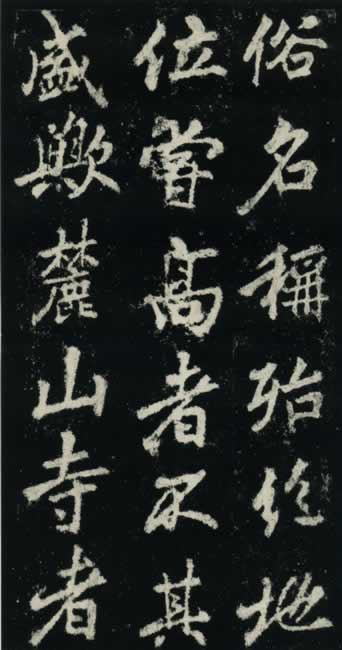 俗名稱殆絕地
位嘗高者不其
盛歟麓山寺者